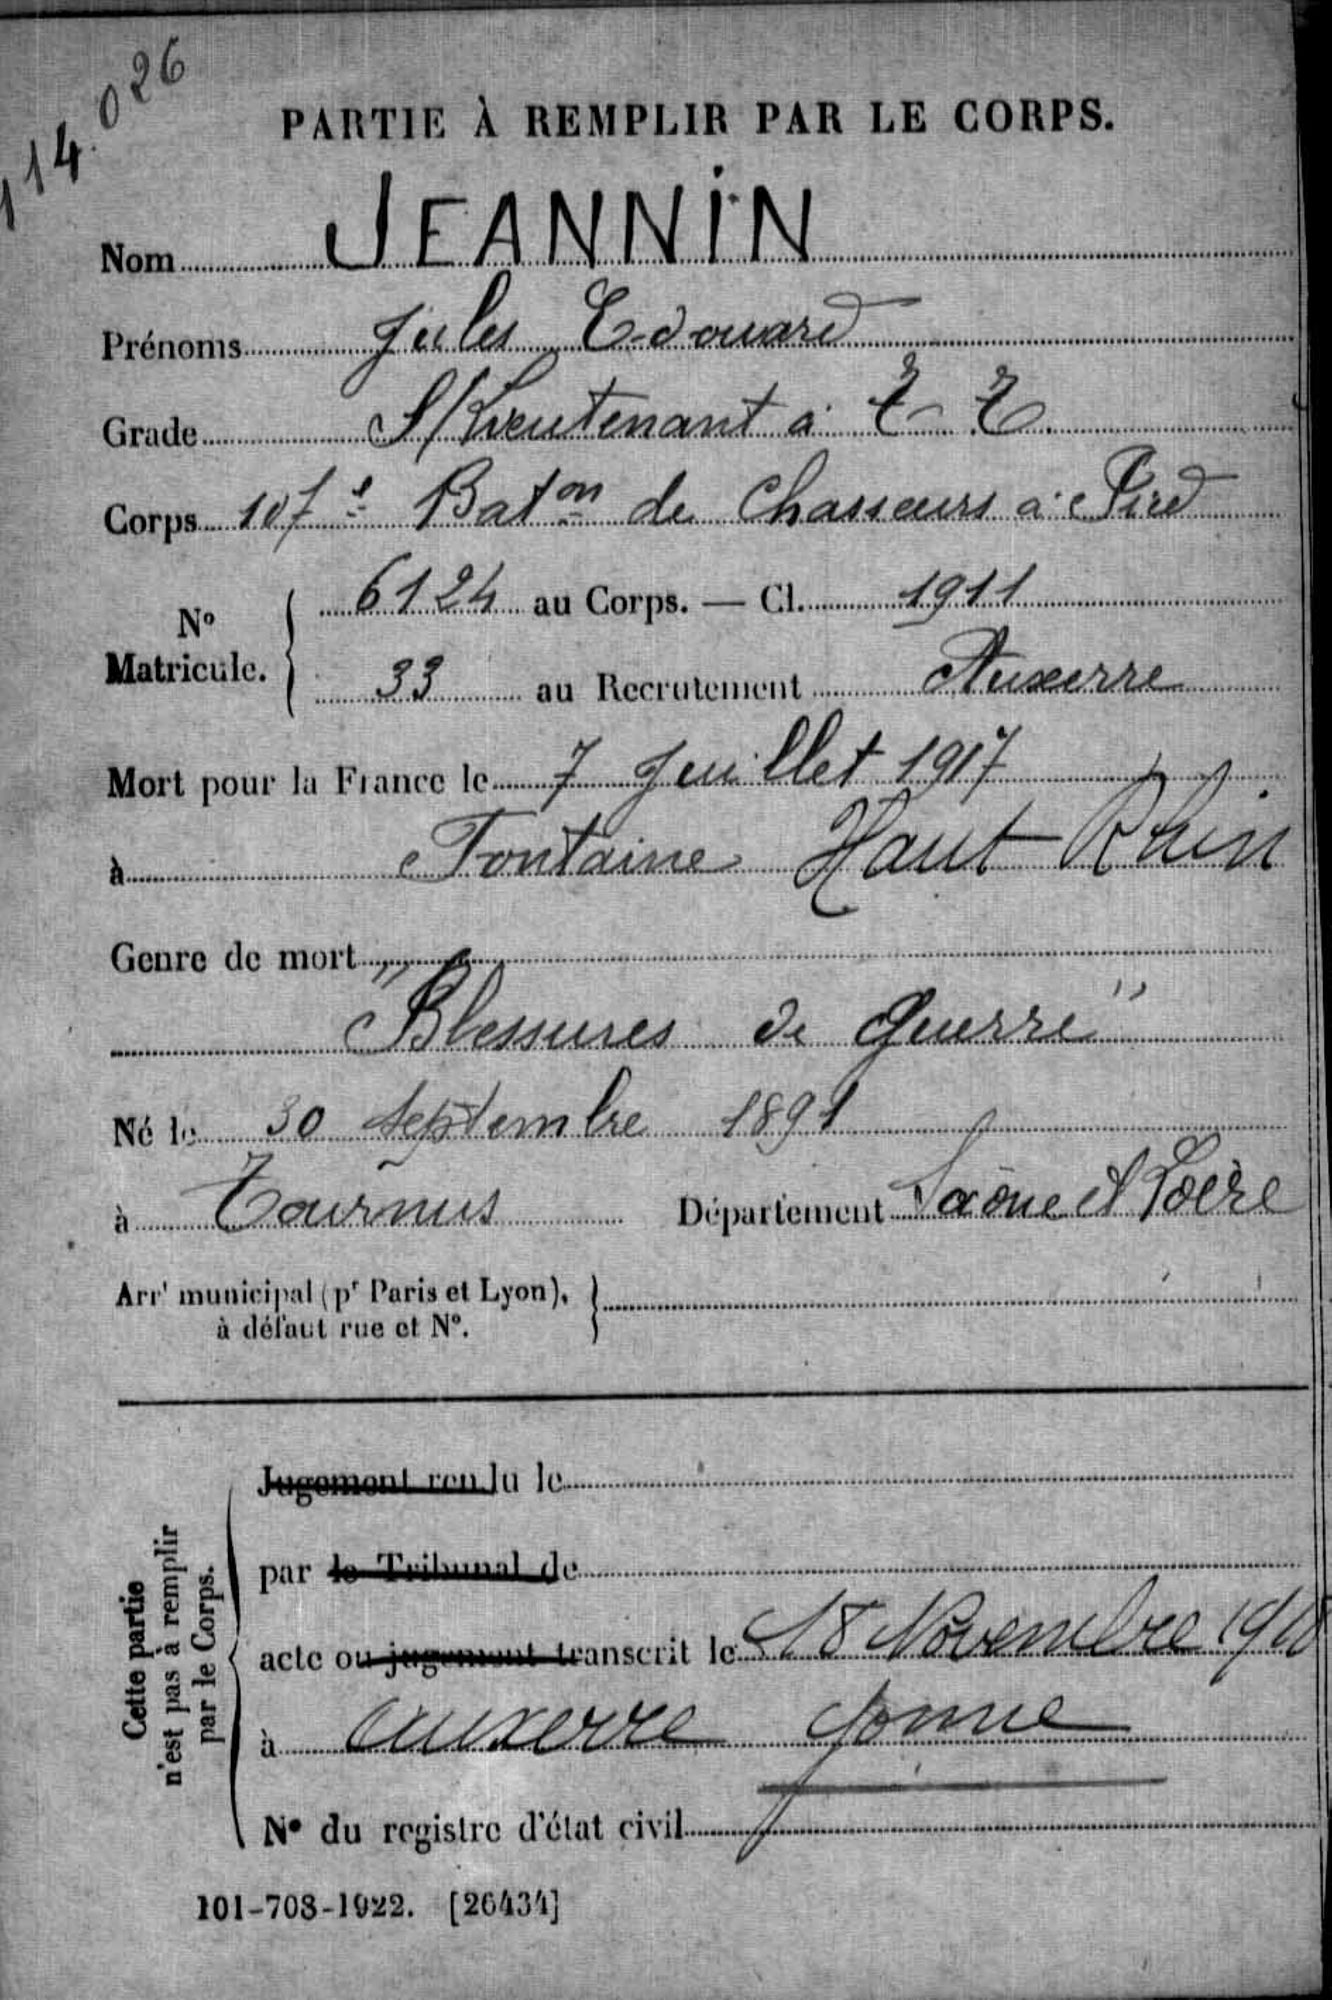 114.026
PARTIE À REMPLIR PAR LE CORPS.
Nom JEANNIN
Prénoms Jules Edouard
Grade S/Lieutenant à T T.
Corps 107e Baton de Chasseurs à Pied
No Matricule. 6124 au Corps. — Cl. 1911
33 au Recrutement Auxerre
Mort pour la France le 7 Juillet 1917
à Fontaine Haut Rhin
Genre de mort
"Blessures de Guerre"
Né le 30 Septembre 1891
à Tournus Département Saône et Loire
Arrt municipal (pr Paris et Lyon),
à défaut rue et No.
Cette partie
n'est pas à remplir
par le Corps.
Jugement rendu le
par le Tribunal de
acte ou jugement transcrit le 18 Novembre
à Auxerre Yonne
No du registre d'état civil
101-708-1922. [26434]